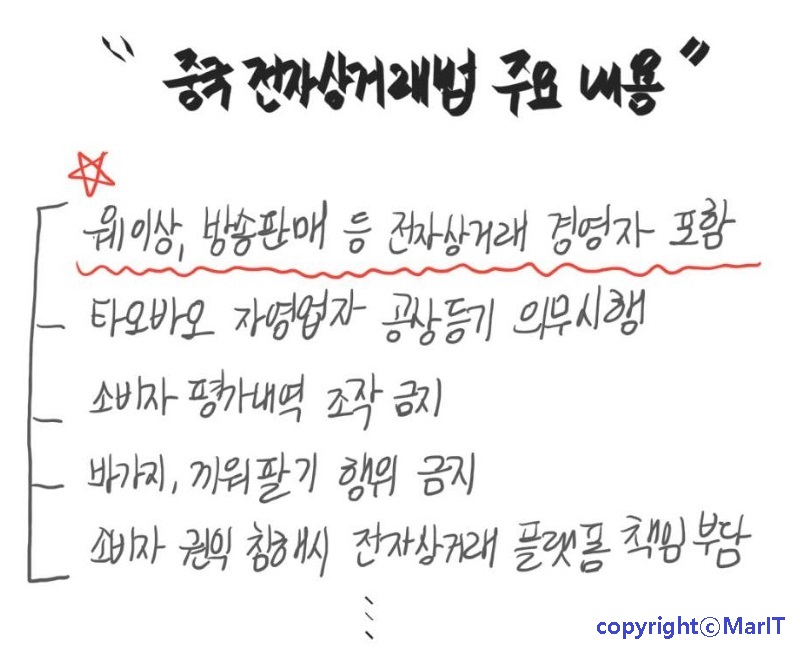 "중국 전자상거래법 주요 내용"
웨이상, 방송판매 등 전자상거래 경영자 포함
타오바오 자영업자 공상등기 의무시행
소비자 평가내역 조작 금지
바가지, 끼워팔기 행위 금지
소비자 권익 침해시 전자상거래 플랫폼 책임 부담
copyrightⓒMarIT